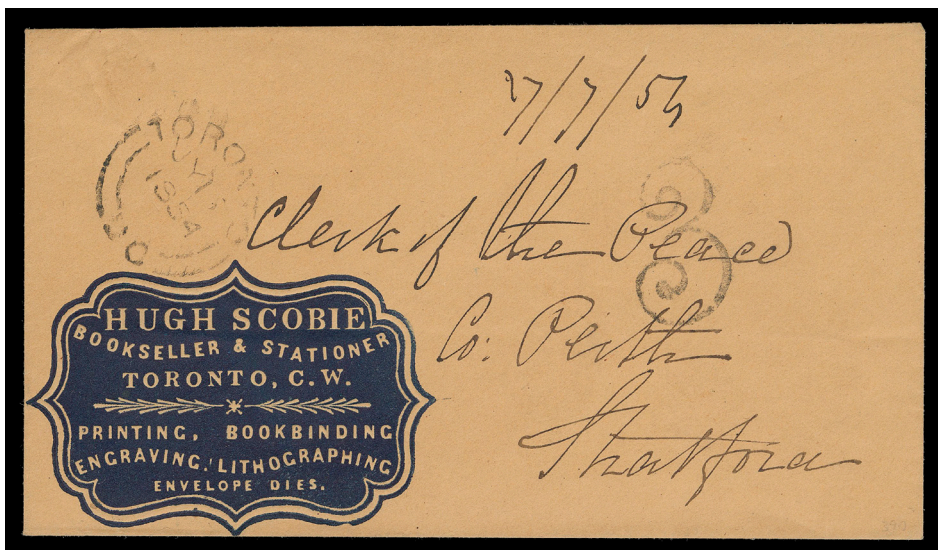 27/7/54
TORONTO
1854
Clerk of the Peace
3
Co: Perth
Stratford
HUGH SCOBIE
BOOKSELLER & STATIONER
TORONTO, C.W.
PRINTING, BOOKBINDING
ENGRAVING, LITHOGRAPHING
ENVELOPE DIES.